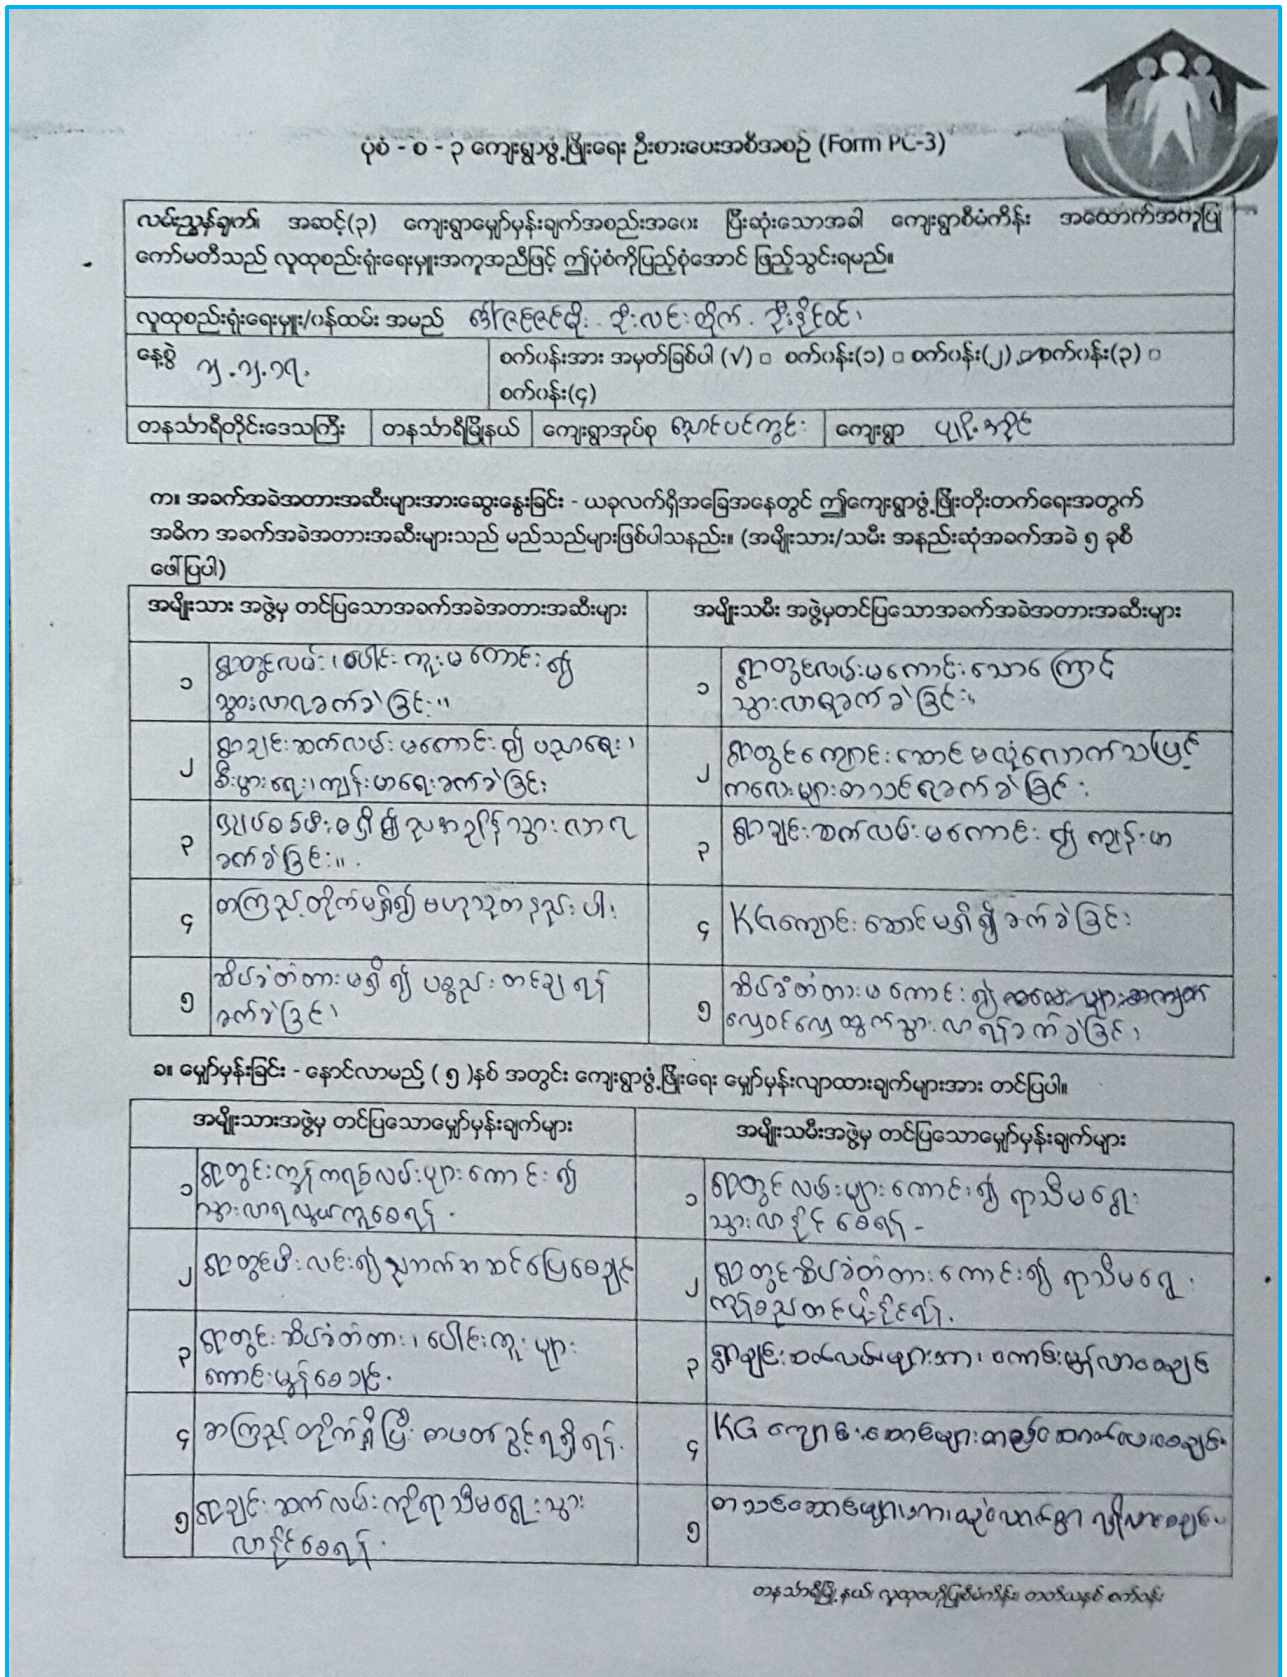 ပုံစံ - စ - ၃ ကျေးရွာဖွံ့ဖြိုးရေး ဦးစားပေးအစီအစဉ် (Form PC-3)
လမ်းညွှန်ချက်။ အဆင့်(၃) ကျေးရွာမျှော်မှန်းချက်အစည်းအဝေး ပြီးဆုံးသောအခါ ကျေးရွာစီမံကိန်း အထောက်အကူပြု
ကော်မတီသည် လူထုစည်းရုံးရေးမှူးအကူအညီဖြင့် ဤပုံစံကိုပြည့်စုံအောင် ဖြည့်သွင်းရမည်။
လူထုစည်းရုံးရေးမှူး/ဝန်ထမ်း အမည် ဦးလင်းထိုက်
နေ့စွဲ ၂.၂.၁၇. စက်ဝန်းအား အမှတ်ခြစ်ပါ (√) □ စက်ဝန်း(၁) □ စက်ဝန်း(၂) စက်ဝန်း(၃) □
စက်ဝန်း(၄)
တနင်္သာရီတိုင်းဒေသကြီး တနင်္သာရီမြို့နယ် ကျေးရွာအုပ်စု ညောင်ပင်ကွင်း ကျေးရွာ
က။ အခက်အခဲအတားအဆီးများအားဆွေးနွေးခြင်း - ယခုလက်ရှိအခြေအနေတွင် ဤကျေးရွာဖွံ့ဖြိုးတိုးတက်ရေးအတွက်
အဓိက အခက်အခဲအတားအဆီးများသည် မည်သည်များဖြစ်ပါသနည်း။ (အမျိုးသား/သမီး အနည်းဆုံအခက်အခဲ ၅ ခုစီ
ဖေါ်ပြပါ)
အမျိုးသား အဖွဲ့မှ တင်ပြသောအခက်အခဲအတားအဆီးများ
အမျိုးသမီး အဖွဲ့မှတင်ပြသောအခက်အခဲအတားအဆီးများ
၁ ရွာတွင်လမ်း၊ပေါင်းကူးမကောင်း၍
သွားလာရခက်ခဲခြင်း။
၁ ရွာတွင်လမ်းမကောင်းသောကြောင့်
သွားလာရခက်ခဲခြင်း။
၂ ရွာချင်းဆက်လမ်းမကောင်း၍ ပညာရေး၊
စီးပွားရေး၊ကျန်းမာရေးခက်ခဲခြင်း
၂ ရွာတွင်ကျောင်းဆောင်မလုံလောက်သဖြင့်
ကလေးများစာသင်ရခက်ခဲခြင်း
၃ လျှပ်စစ်မီးမရှိ၍ညအချိန်သွားလာရ
ခက်ခဲခြင်း။
၃ ရွာချင်းဆက်လမ်းမကောင်း၍ ကျန်းမာ
၄ စာကြည့်တိုက်မရှိ၍ ဗဟုသုတနည်းပါး
၄ KGကျောင်းဆောင်မရှိ၍ခက်ခဲခြင်း
၅ ဆိပ်ခံတံတားမရှိ၍ ပစ္စည်းတင်ချရန်
ခက်ခဲခြင်း၊
၅ ဆိပ်ခံတံတားမကောင်း၍
လှေဝင်လှေထွက်သွားလာရန်ခက်ခဲခြင်း၊
ခ။ မျှော်မှန်းခြင်း - နောင်လာမည့် ( ၅ )နှစ် အတွင်း ကျေးရွာဖွံ့ဖြိုးရေး မျှော်မှန်းလျာထားချက်များအား တင်ပြပါ။
အမျိုးသားအဖွဲ့မှ တင်ပြသောမျှော်မှန်းချက်များ
အမျိုးသမီးအဖွဲ့မှ တင်ပြသောမျှော်မှန်းချက်များ
၁ ရွာတွင်းကွန်ကရစ်လမ်းများကောင်း၍
သွားလာရလွယ်ကူစေရန်.
၁ ရွာတွင်လမ်းများကောင်း၍ ရာသီမရွေး
သွားလာနိုင်စေရန် -
၂ ရွာတွင်မီးလင်း၍ညဘက်အဆင်ပြေစေချင်
၂ ရွာတွင်ဆိပ်ခံတံတားကောင်း၍ ရာသီမရွေး
၃ ရွာတွင်းဆိပ်ခံတံတား၊ပေါင်းကူးများ
ကောင်းမွန်စေချင်.
၃ ရွာချင်းဆက်လမ်းများအား ကောင်းမွန်လာစေချင်
၄ စာကြည့်တိုက်ရှိပြီး စာဖတ်ခွင့်ရရှိရန်.
၄ KG ကျောင်းဆောင်များတည်ဆောက်ပေးစေချင်
၅ ရွာချင်းဆက်လမ်းကိုရာသီမရွေးသွား
လာနိုင်စေရန်.
၅ စာသင်ဆောင်များ
တနင်္သာရီမြို့နယ်၊ လူထုဗဟိုပြုစီမံကိန်း၊ တတိယနှစ် စက်ဝန်း